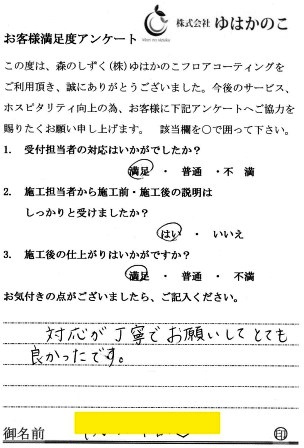 株式会社 ゆはかのこ
お客様満足度アンケート
この度は、森のしずく(株)ゆはかのこフロアコーティングを
ご利用頂き、誠にありがとうございました。今後のサービス、
ホスピタリティ向上の為、お客様に下記アンケートへご協力を
賜りたくお願い申し上げます。 該当欄を○で囲って下さい。
1. 受付担当者の対応はいかがでしたか?
満足 ・ 普通 ・不 満
2. 施工担当者から施工前・施工後の説明は
しっかりと受けましたか?
はい ・ いいえ
3. 施工後の仕上がりはいかがですか?
満足 ・ 普通 ・ 不満
お気付きの点がございましたら、ご記入ください。
対応が丁寧でお願いしてとても
良かったです。
御名前 印